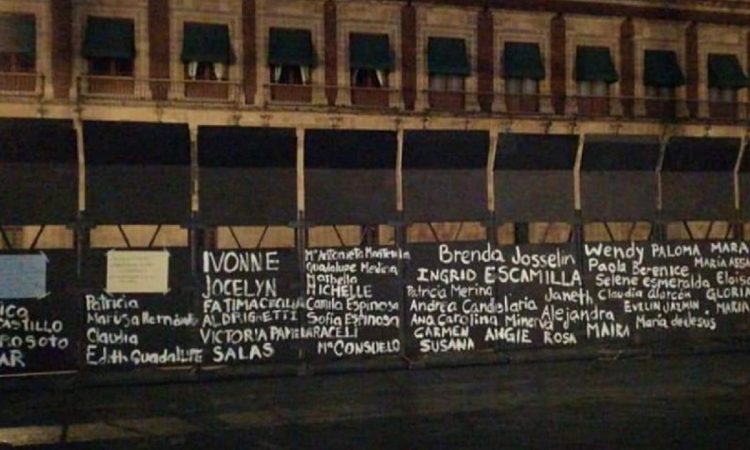 CASTILLO
SOTO
AR
Patricia
Marusa Hernández
Claudia
Edith Guadalupe
IVONNE
JOCELYN
FATIMA CECILIA
ALDRIGHETTI
VICTORIA PAMELA
SALAS
Mª Antonieta
Guadalupe Medina
Marbella
MICHELLE
Camila Espinosa
Sofia Espinosa
ARACELI
Mª CONSUELO
Brenda Josselin
INGRID ESCAMILLA
Patricia Merina
Andrea Candelaria
Ana Carolina Minerva
CARMEN ANGIE ROSA
SUSANA
Janeth
Alejandra
Wendy PALOMA MARA
Paola Berenice MARIA
Selene esmeralda Elois
Claudia alarcón GLORI
EVELIN JAZMIN MARIN
MAIRA María de Jesus